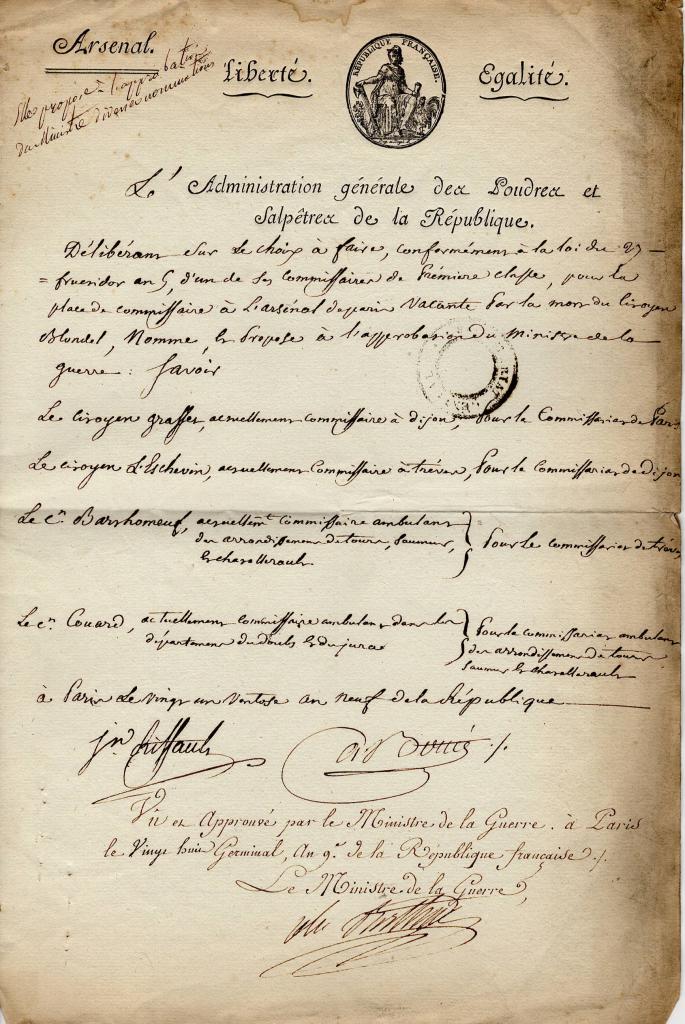 Arsenal.
Elle propose à l'approbation
du Ministre diverses nominations
Liberté.
RÉPUBLIQUE FRANÇAISE.
Egalité.
L' Administration générale des Poudres et
Salpêtres de la République.
Délibérant sur le choix à faire, conformément à la loi du 27
= fructidor an 5, d'un de ses commissaires de Première classe, pour la
place de commissaire à L'arsénal de paris Vacante Par la mort du Citoyen
Blondel, Nomme, et Propose à l'approbation du Ministre de la
guerre : Savoir
Le citoyen grasset, actuellement commissaire à dijon, Pour le Commissariat de Paris
Le citoyen L'Eschevin, actuellement Commissaire à trèves, Pour le Commissariat de dijon
Le cn. Barthomeuf, actuellemt. Commissaire ambulant
des arrondissemens de tours, Saumur,
et chatellerault
} Pour le commissariat de trèves
Le cn. Couard, actuellement commissaire ambulant dans les
départemens du doubs et du jura
} Pour le commissariat ambulant
des arrondissemens de tours
saumur et chatellerault
à Paris Le vingt un Ventose an neuf de la République
jn. Riffault
Vu et Approuvé par le Ministre de la Guerre. à Paris
le Vingt huit Germinal, An 9e. de la République française ./.
Le Ministre de la Guerre,